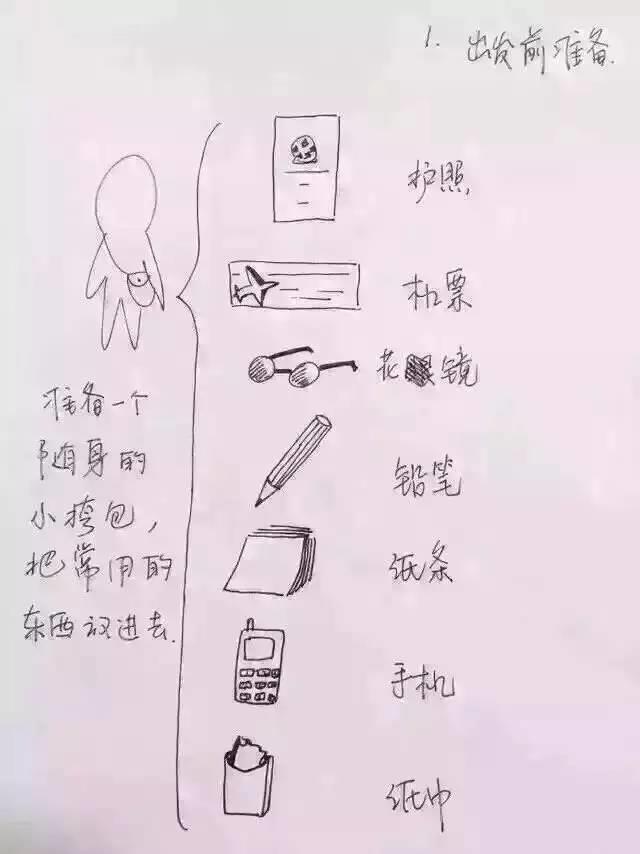 1. 出发前准备.
护照
机票
花镜
铅笔
纸条
手机
纸巾
准备一个
随身的
小挎包,
把常用的
东西放进去.